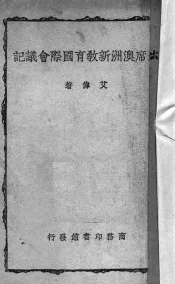 出席澳洲新教育國際會議記
艾偉著
商務印書館發行